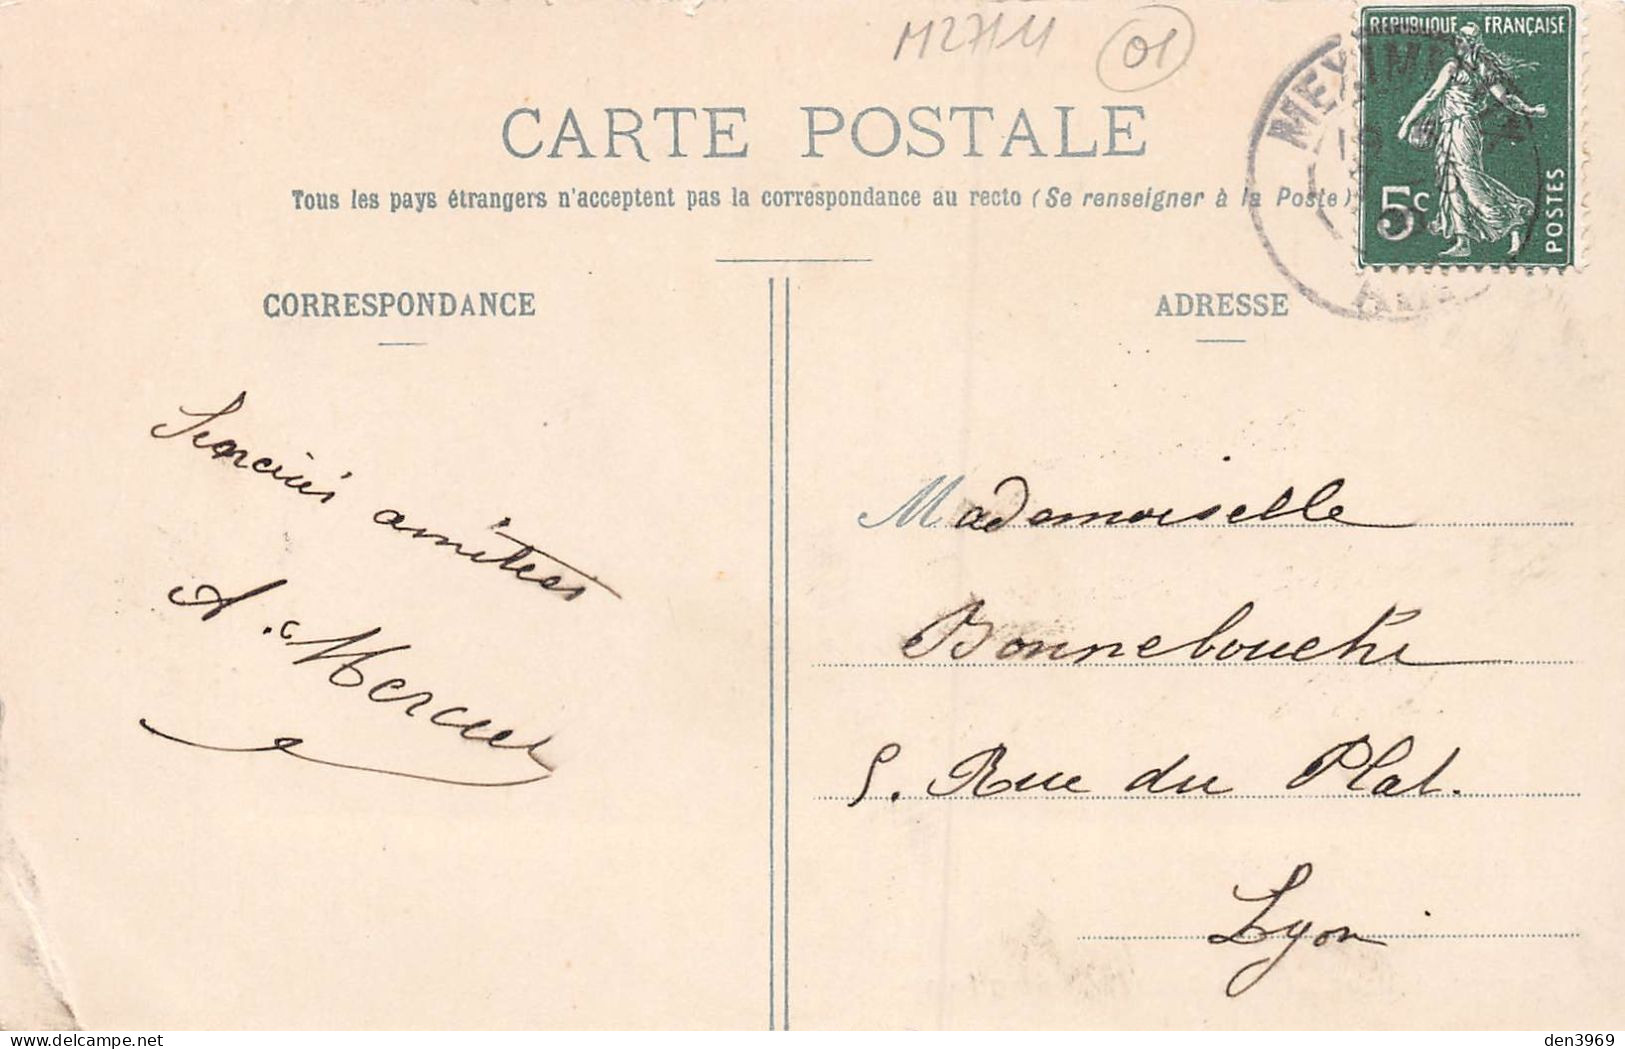 M2711 01
CARTE POSTALE
Tous les pays étrangers n'acceptent pas la correspondance au recto (Se renseigner à la Poste)
REPUBLIQUE FRANÇAISE
5c
POSTES
MEXIMIEUX
AIN
CORRESPONDANCE
ADRESSE
amitiés
A. Mercier
Mademoiselle
Bonnebouche
5. Rue du Plat.
Lyon
den3969